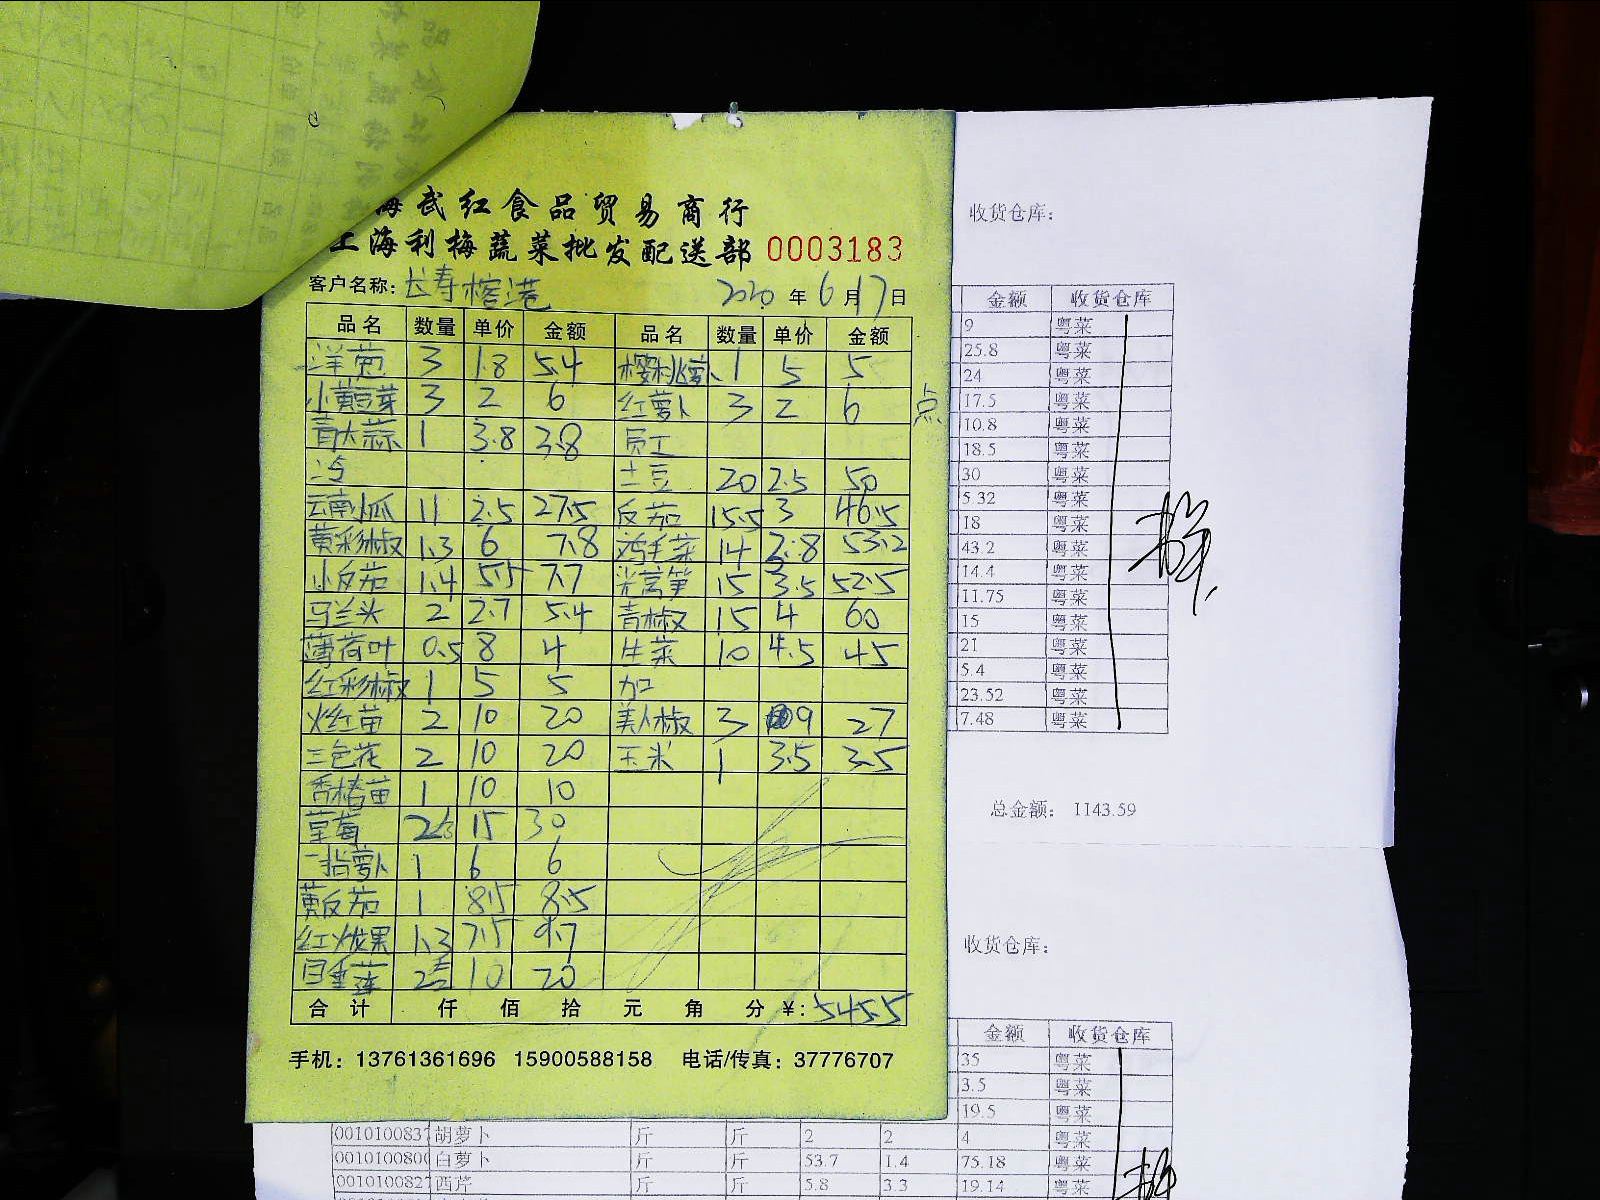 海武红食品贸易商行
上海利梅蔬菜批发配送部 0003183
客户名称: 长寿榕港 2020年6月17日
品名 数量 单价 金额 品名 数量 单价 金额
洋葱 3 1.8 5.4 樱桃萝卜 1 5 5
小黄豆芽 3 2 6 红萝卜 3 2 6 点
青大蒜 1 3.8 3.8 员工
冷 土豆 20 2.5 50
云南小瓜 11 2.5 27.5 反茄 15.5 3 46.5
黄彩椒 1.3 6 7.8 鸡毛菜 14 3.8 53.2
小反茄 1.4 5.5 7.7 光莴笋 15 3.5 52.5
马兰头 2 2.7 5.4 青椒 15 4 60
薄荷叶 0.5 8 4 生菜 10 4.5 45
红彩椒 1 5 5 加
火红苗 2 10 20 美人椒 3 9 27
三色花 2 10 20 玉米 1 3.5 3.5
香椿苗 1 10 10
草莓 2 15 30
一指萝卜 1 6 6
黄反茄 1 8.5 8.5
红火龙果 1.3 7.5 9.7
日垂莲 2 10 20
合计 仟 佰 拾 元 角 分 ¥: 545.5
手机: 13761361696 15900588158 电话/传真: 37776707
收货仓库:
金额 收货仓库
9 粤菜
25.8 粤菜
24 粤菜
17.5 粤菜
10.8 粤菜
18.5 粤菜
30 粤菜
5.32 粤菜
18 粤菜
43.2 粤菜
14.4 粤菜
11.75 粤菜
15 粤菜
21 粤菜
5.4 粤菜
23.52 粤菜
7.48 粤菜
总金额: 1143.59
收货仓库:
金额 收货仓库
35 粤菜
3.5 粤菜
19.5 粤菜
0010100837 胡萝卜 斤 斤 2 2 4 粤菜
0010100800 白萝卜 斤 斤 53.7 1.4 75.18 粤菜
0010100827 西芹 斤 斤 5.8 3.3 19.14 粤菜